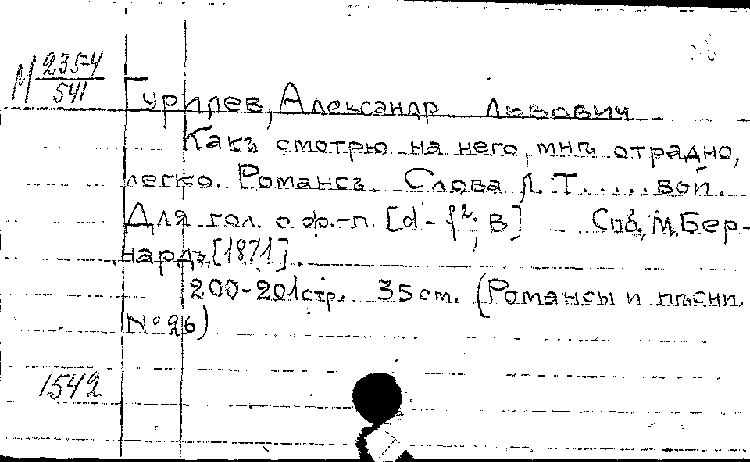 М 2354
541
Гурилев, Александр Львович
Какъ смотрю на него, мнѣ отрадно,
легко. Романсъ. Слова Л. Т.....вой.
Для гол. с ф.-п. [d - f²; B] Спб, М. Бер-
нардъ, [1871].
200-201 стр. 35 cm. (Романсы и пѣсни.
№ 26)
1542